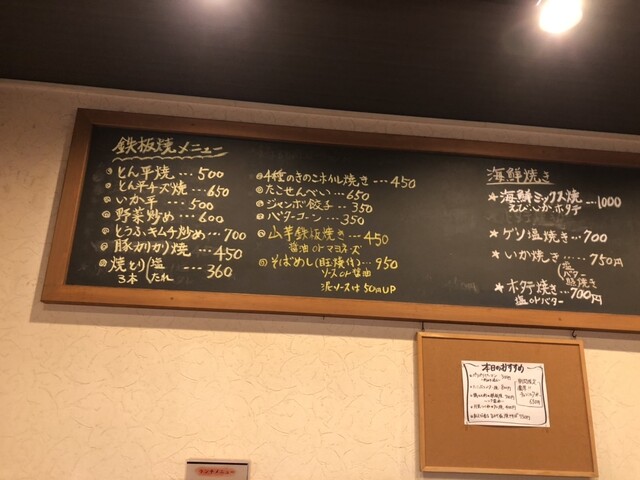 鉄板焼メニュー
とん平焼…500
とん平チーズ焼…650
いか平…500
野菜炒め…600
とうふキムチ炒め…700
豚カリカリ焼…450
焼とり(塩 たれ …360
3本
4種のきのこホイル焼き…450
たこせんべい…650
ジャンボ餃子…350
バターコーン…350
山芋鉄板焼き…450
醤油orマヨネーズ
そばめし(目玉焼付)…950
ソースor醤油
泥ソースは50円UP
海鮮焼き
★海鮮ミックス焼…1000
えび、いか、ホタテ
★ゲソ塩焼き…700
★いか焼き…750円
(塩 バター 照焼き
★ホタテ焼き…700円
塩orバター
本日のおすすめ
ランチメニュー